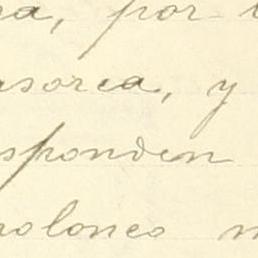 a, por
asorea, y
sponden
rolones